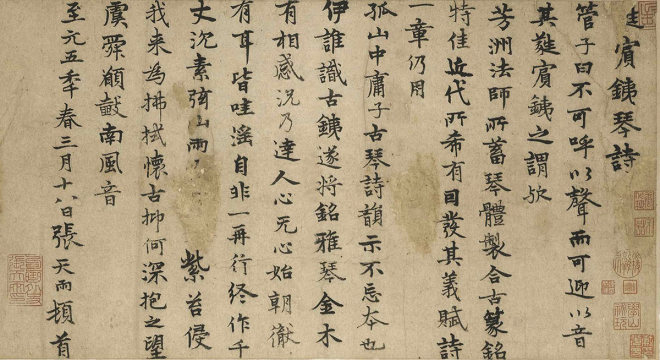 賓銕琴詩
管子曰不可呼以聲而可迎以音
其蕤賓銕之謂歟
芳洲法師所蓄琴體製合古篆銘
特佳近代所希有因發其義賦詩
一章仍用
孤山中庸子古琴詩韻示不忘本也
伊誰識古銕遂將銘雅琴金木
有相感況乃達人心无心始朝徹
有耳皆哇滛自非一再行終作千
丈沉素弦山雨紫苔侵
我来為拂拭懷古抑何深抱之望
虞舜願鼓南風音
至元五秊春三月十八日張天雨頓首